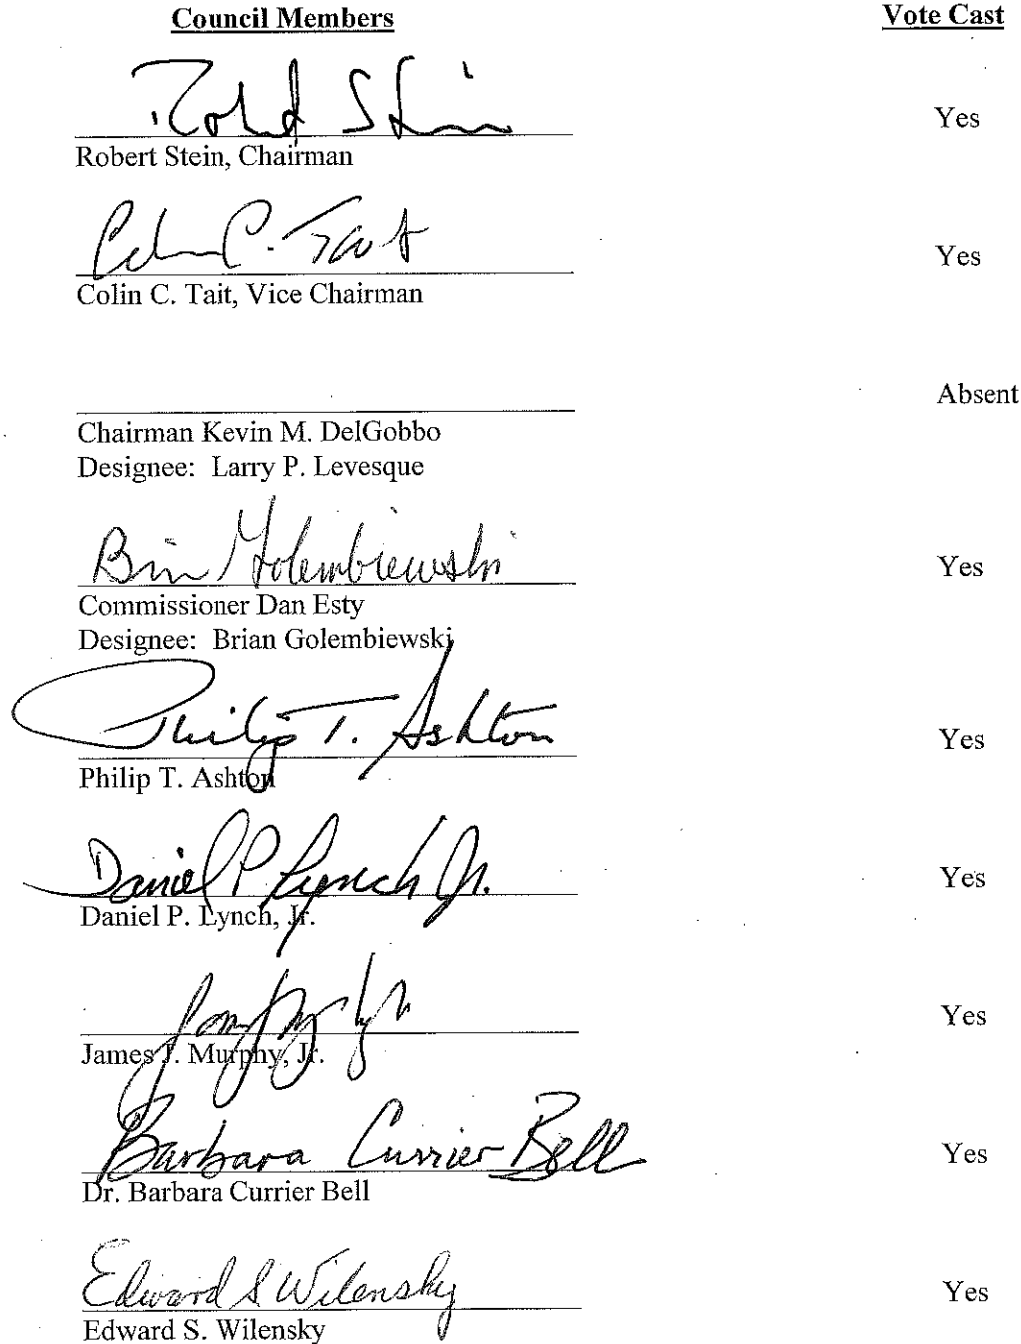 Council Members Vote Cast
Robert Stein Yes
Robert Stein, Chairman
Colin C. Tait Yes
Colin C. Tait, Vice Chairman
Absent
Chairman Kevin M. DelGobbo
Designee: Larry P. Levesque
Brian Golembiewski Yes
Commissioner Dan Esty
Designee: Brian Golembiewski
Philip T. Ashton Yes
Philip T. Ashton
Daniel P Lynch Jr. Yes
Daniel P. Lynch, Jr.
Yes
James J. Murphy, Jr.
Barbara Currier Bell Yes
Dr. Barbara Currier Bell
Edward S Wilensky Yes
Edward S. Wilensky